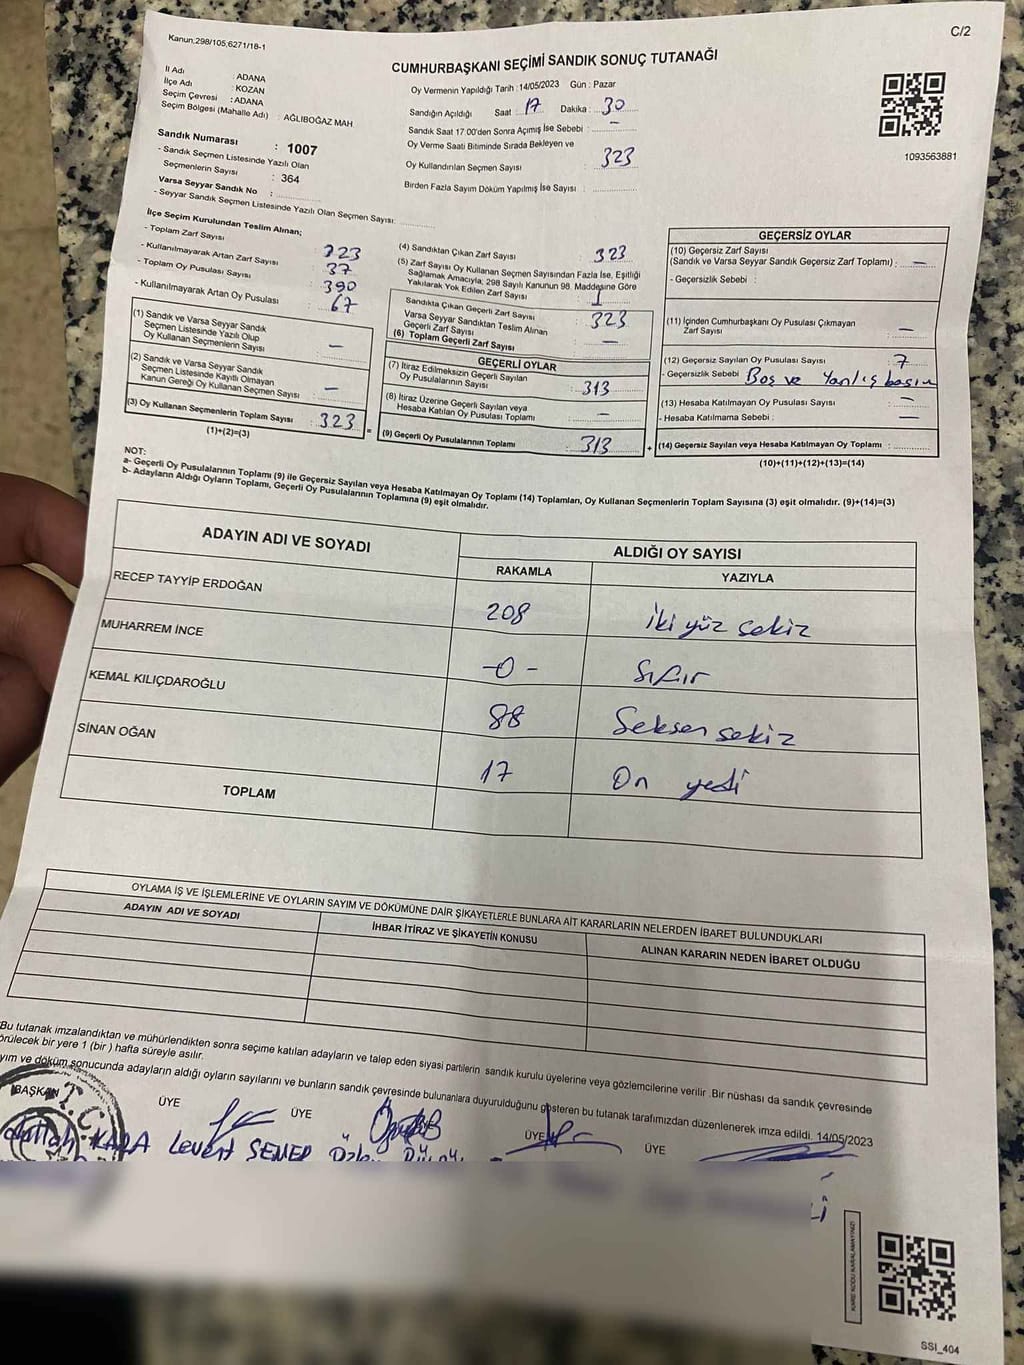 C/2
Kanun:298/105,6271/18-1
CUMHURBAŞKANI SEÇİMİ SANDIK SONUÇ TUTANAĞI
İl Adı : ADANA
İlçe Adı : KOZAN
Seçim Çevresi : ADANA
Seçim Bölgesi (Mahalle Adı) : AĞLIBOĞAZ MAH
Sandık Numarası : 1007
- Sandık Seçmen Listesinde Yazılı Olan
Seçmenlerin Sayısı : 364
Varsa Seyyar Sandık No :
- Seyyar Sandık Seçmen Listesinde Yazılı Olan Seçmen Sayısı:
Oy Vermenin Yapıldığı Tarih :14/05/2023 Gün : Pazar
Sandığın Açıldığı Saat : 17 Dakika : 30
Sandık Saat 17.00'den Sonra Açımış İse Sebebi : -
Oy Verme Saati Bitiminde Sırada Bekleyen ve
Oy Kullandırılan Seçmen Sayısı : 323
Birden Fazla Sayım Döküm Yapılmış İse Sayısı :
1093563881
İlçe Seçim Kurulundan Teslim Alınan;
- Toplam Zarf Sayısı :
- Kullanılmayarak Artan Zarf Sayısı : 37
- Toplam Oy Pusulası Sayısı : 390
- Kullanılmayarak Artan Oy Pusulası : 67
(1) Sandık ve Varsa Seyyar Sandık
Seçmen Listesinde Yazılı Olup
Oy Kullanan Seçmenlerin Sayısı : -
(2) Sandık ve Varsa Seyyar Sandık
Seçmen Listesinde Kayıtlı Olmayan
Kanun Gereği Oy Kullanan Seçmen Sayısı : -
(3) Oy Kullanan Seçmenlerin Toplam Sayısı : 323
(1)+(2)=(3)
(4) Sandıktan Çıkan Zarf Sayısı : 323
(5) Zarf Sayısı Oy Kullanan Seçmen Sayısından Fazla İse, Eşitliği
Sağlamak Amacıyla; 298 Sayılı Kanunun 98. Maddesine Göre
Yakılarak Yok Edilen Zarf Sayısı :
Sandıkta Çıkan Geçerli Zarf Sayısı : 323
Varsa Seyyar Sandıktan Teslim Alınan
Geçerli Zarf Sayısı : -
(6) Toplam Geçerli Zarf Sayısı :
GEÇERLİ OYLAR
(7) İtiraz Edilmeksizin Geçerli Sayılan
Oy Pusulalarının Sayısı : 313
(8) İtiraz Üzerine Geçerli Sayılan veya
Hesaba Katılan Oy Pusulaları Toplamı : -
= (9) Geçerli Oy Pusulalarının Toplamı : 313
GEÇERSİZ OYLAR
(10) Geçersiz Zarf Sayısı
(Sandık ve Varsa Seyyar Sandık Geçersiz Zarf Toplamı) : -
- Geçersizlik Sebebi :
(11) İçinden Cumhurbaşkanı Oy Pusulası Çıkmayan
Zarf Sayısı : -
(12) Geçersiz Sayılan Oy Pusulası Sayısı : 7
- Geçersizlik Sebebi : Boş ve Yanlış basım
(13) Hesaba Katılmayan Oy Pusulası Sayısı : -
- Hesaba Katılmama Sebebi : -
+ (14) Geçersiz Sayılan veya Hesaba Katılmayan Oy Toplamı :
(10)+(11)+(12)+(13)=(14)
NOT:
a- Geçerli Oy Pusulalarının Toplamı (9) ile Geçersiz Sayılan veya Hesaba Katılmayan Oy Toplamı (14) Toplamları, Oy Kullanan Seçmenlerin Toplam Sayısına (3) eşit olmalıdır. (9)+(14)=(3)
b- Adayların Aldığı Oyların Toplamı, Geçerli Oy Pusulalarının Toplamına (9) eşit olmalıdır.
ADAYIN ADI VE SOYADI ALDIĞI OY SAYISI
RAKAMLA YAZIYLA
RECEP TAYYİP ERDOĞAN 208 İki yüz sekiz
MUHARREM İNCE -0- Sıfır
KEMAL KILIÇDAROĞLU 88 Seksen sekiz
SİNAN OĞAN 17 On yedi
TOPLAM
OYLAMA İŞ VE İŞLEMLERİNE VE OYLARIN SAYIM VE DÖKÜMÜNE DAİR ŞİKAYETLERLE BUNLARA AİT KARARLARIN NELERDEN İBARET BULUNDUKLARI
ADAYIN ADI VE SOYADI İHBAR İTİRAZ VE ŞİKAYETİN KONUSU ALINAN KARARIN NEDEN İBARET OLDUĞU
Bu tutanak imzalandıktan ve mühürlendikten sonra seçime katılan adayların ve talep eden siyasi partilerin sandık kurulu üyelerine veya gözlemcilerine verilir .Bir nüshası da sandık çevresinde
örülecek bir yere 1 (bir ) hafta süreyle asılır.
yım ve döküm sonucunda adayların aldığı oyların sayılarını ve bunların sandık çevresinde bulunanlara duyurulduğunu gösteren bu tutanak tarafımızdan düzenlenerek imza edildi. 14/05/2023
BAŞKAN T.C. ÜYE ÜYE ÜYE ÜYE
KARA Levent
KARE KODU KARALAMAYINIZ!
SSI_404